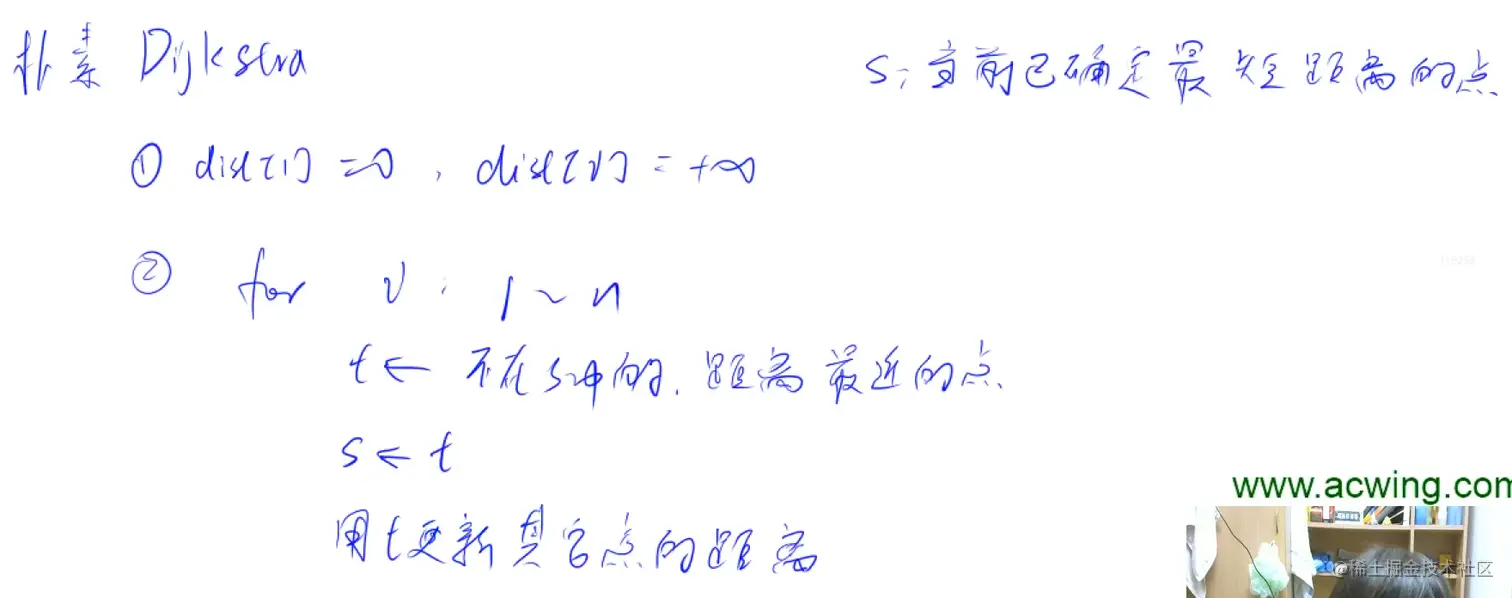 朴素 Dijkstra
s: 当前已确定最短距离的点
① dist[1] = 0, dist[i] = +∞
② for i: 1 ~ n
t ← 不在s中的, 距离最近的点
s ← t
用t更新其它点的距离
www.acwing.com
@稀土掘金技术社区